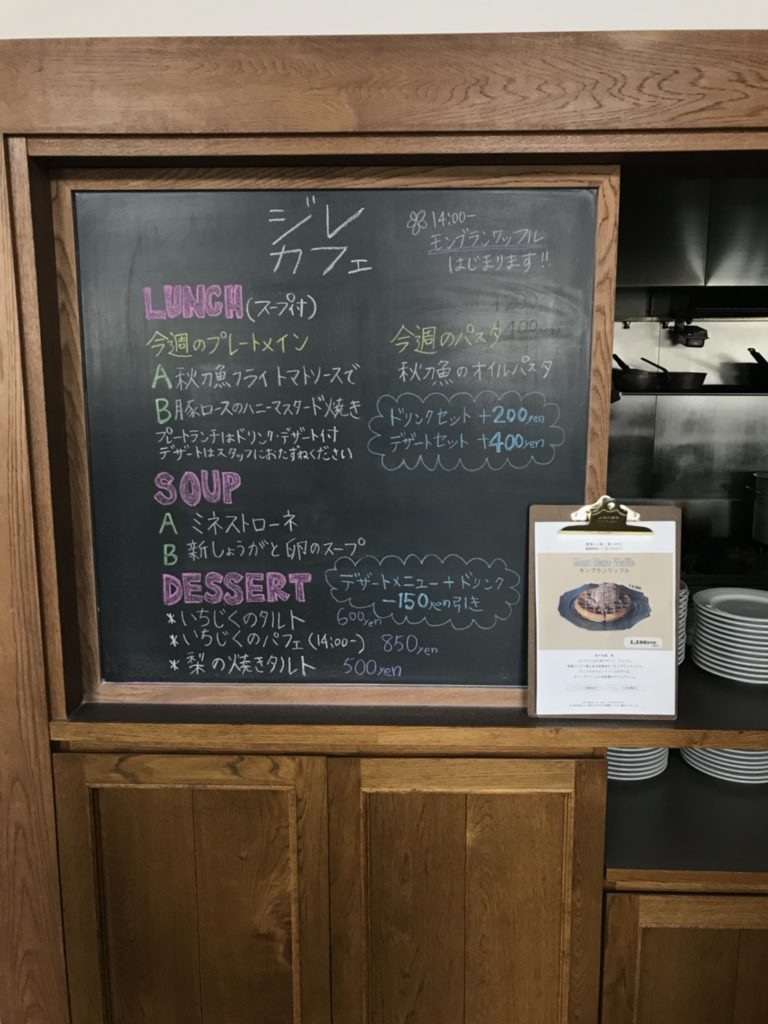 ジレ
カフェ
14:00-
モンブランワッフル
はじまります!!
LUNCH (スープ付)
今週のプレートメイン
A 秋刀魚フライトマトソースで
B 豚ロースのハニーマスタード焼き
プレートランチはドリンク・デザート付
デザートはスタッフにおたずねください
今週のパスタ
秋刀魚のオイルパスタ
ドリンクセット +200yen
デザートセット +400yen
SOUP
A ミネストローネ
B 新しょうがと卵のスープ
DESSERT
デザートメニュー+ドリンク
-150yenの引き
*いちじくのタルト 600yen
*いちじくのパフェ(14:00-) 850yen
*梨の焼きタルト 500yen
Mont Blanc Waffle
モンブランワッフル
1,100yen